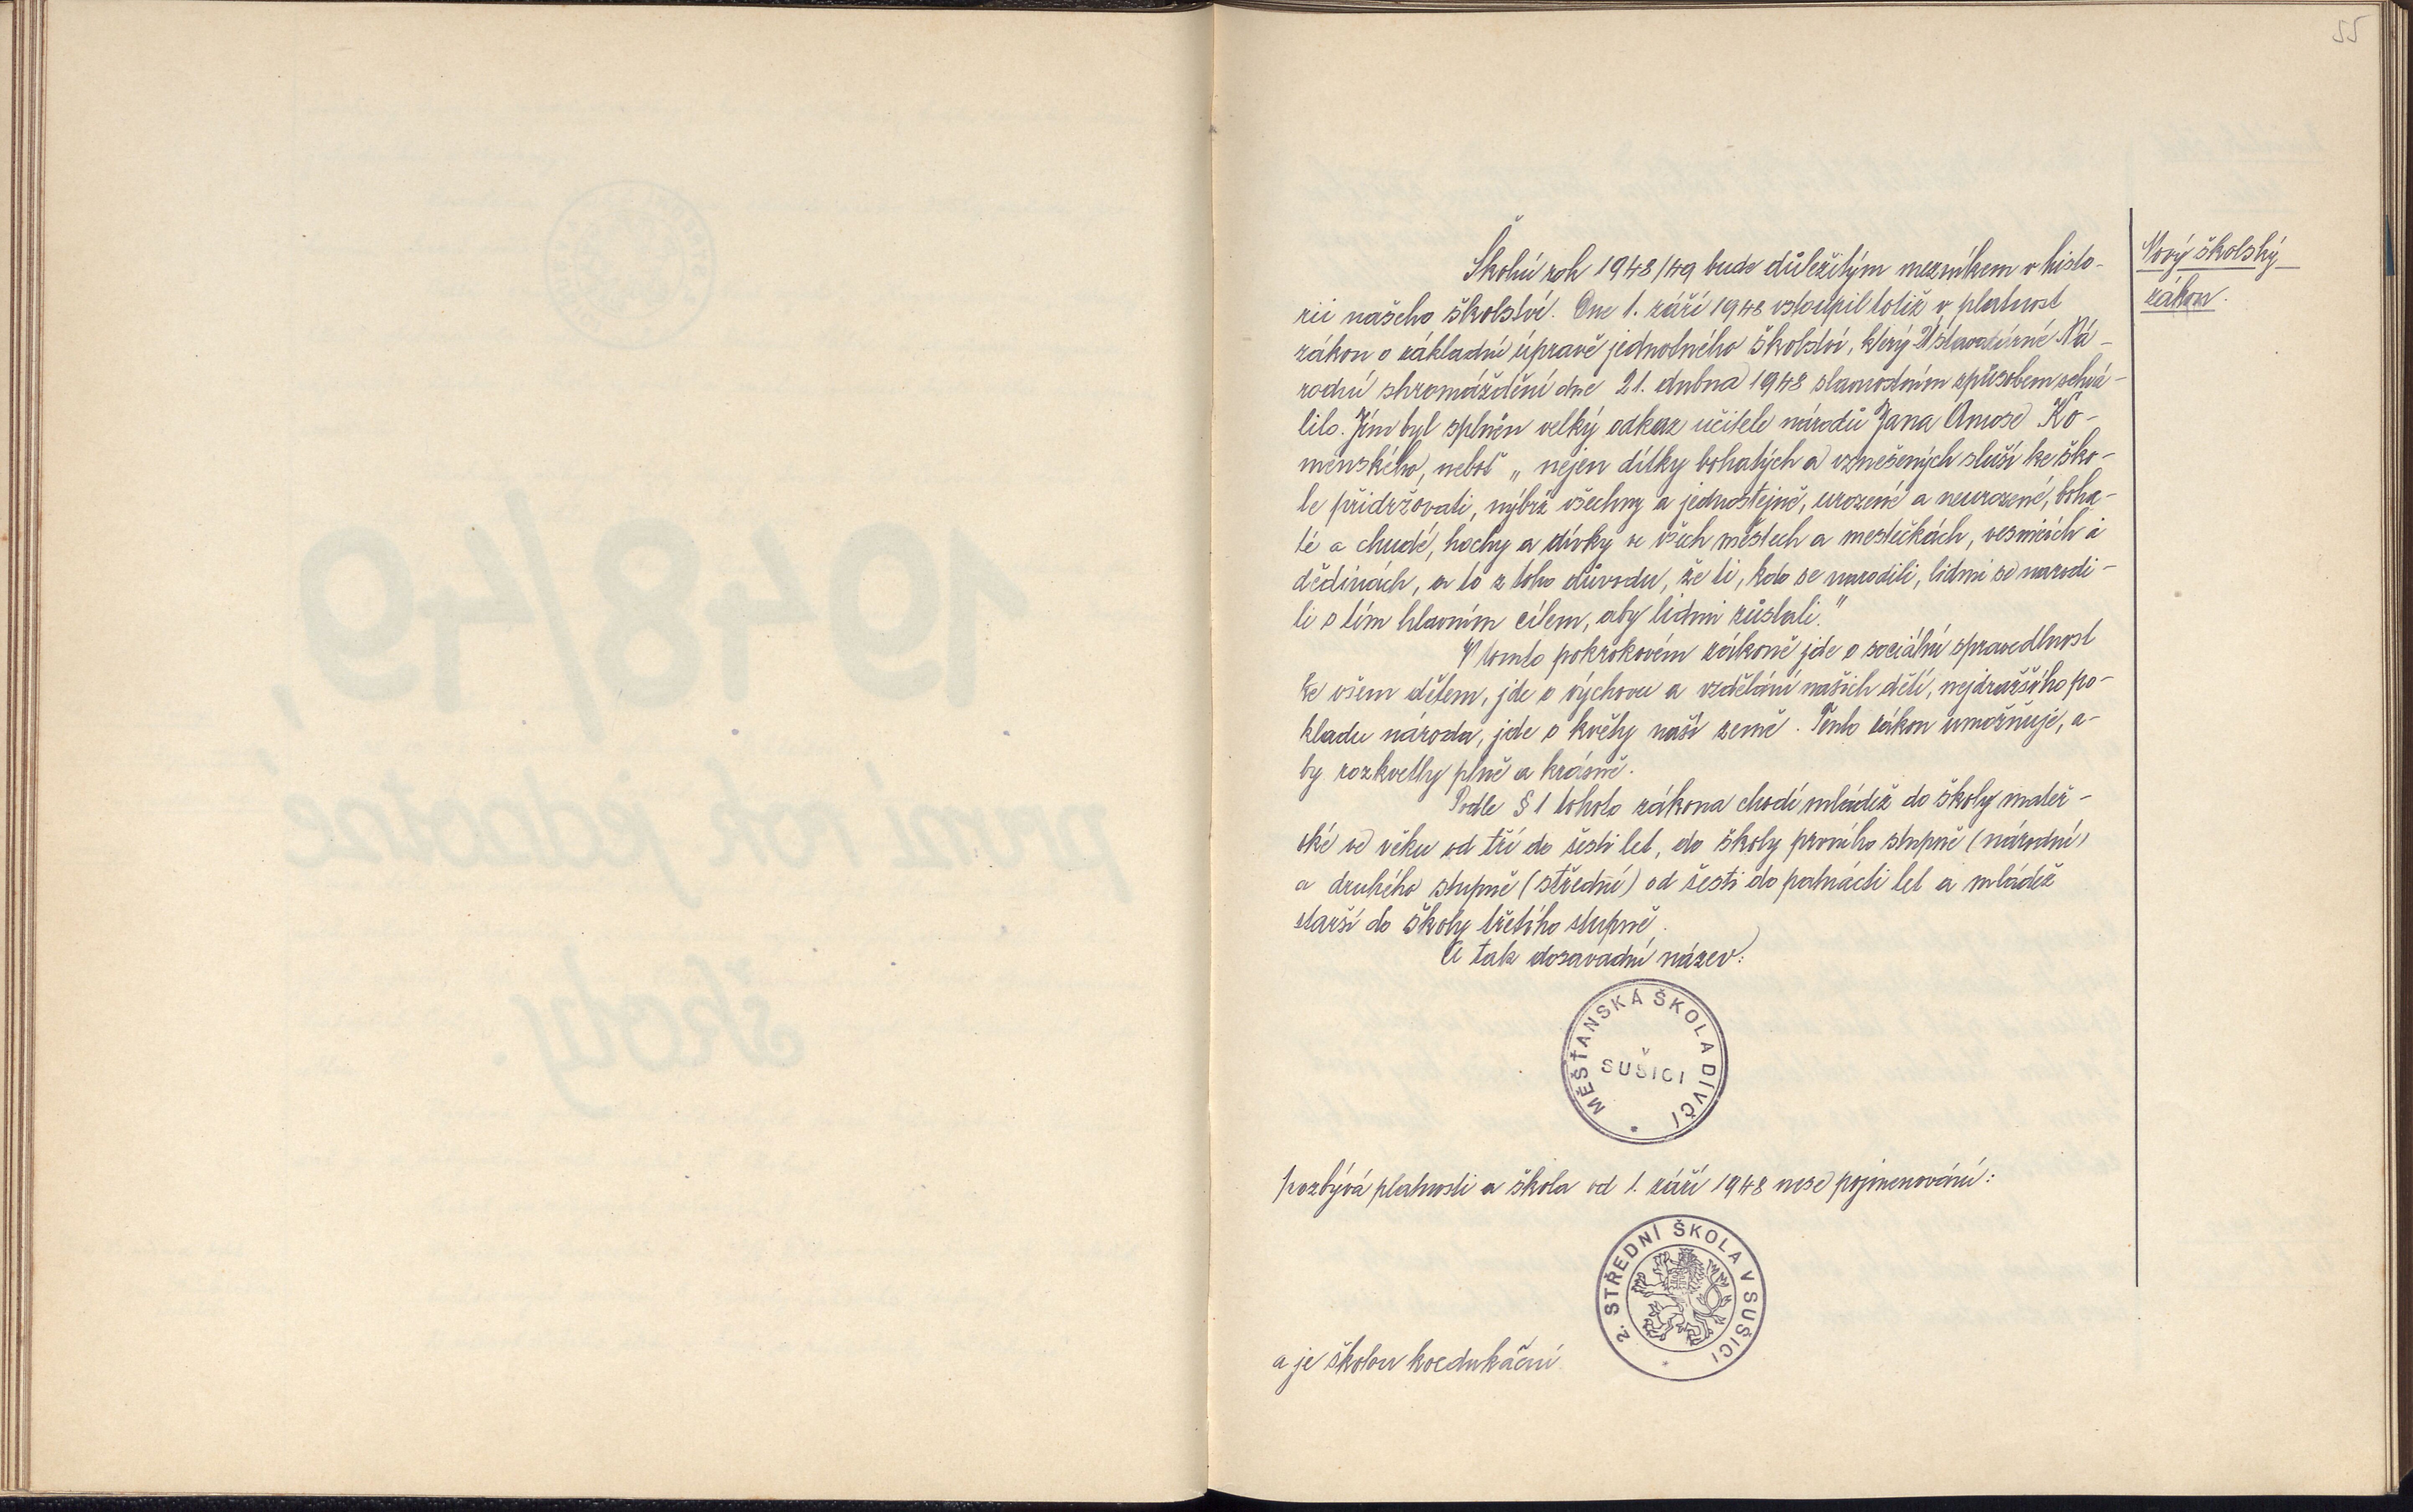 55
Nový školský
zákon.
Školní rok 1948/49 bude důležitým mezníkem v histo-
rii našeho školství. Dne 1. září 1948 vstoupil totiž v platnost
zákon o základní úpravě jednotného školství, který Ústavodárné Ná-
rodní shromáždění dne 21. dubna 1948 slavnostním způsobem schvá-
lilo. Jím byl splněn velký odkaz učitele národů Jana Amose Ko-
menského, neboť „nejen dítky bohatých a vznešených sluší ke ško-
le přidržovati, nýbrž všechny a jednostejně, urozené a neurozené, boha-
té a chudé, hochy a dívky ve všech městech a mestečkách, vesnicích i
dědinách, a to z toho důvodu, že ti, kdo se narodili, lidmi se narodi-
li s tím hlavním cílem, aby lidmi zůstali."
V tomto pokrokovém zákoně jde o sociální spravedlnost
ke všem dětem, jde o výchovu a vzdělání našich dětí, nejdražšího po-
kladu národa, jde o květy naší země. Tento zákon umožňuje, a-
by rozkvetly plně a krásně.
Podle § 1 tohoto zákona chodí mládež do školy mateř-
ské ve věku od tří do šesti let, do školy prvního stupně (národní)
a druhého stupně (střední) od šesti do patnácti let a mládež
starší do školy třetího stupně.
A tak dosavadní název:
MĚŠŤANSKÁ ŠKOLA DÍVČÍ
V
SUŠICI
pozbývá platnosti a škola od 1. září 1948 nese pojmenování:
2. STŘEDNÍ ŠKOLA V SUŠICI
a je školou koedukační.
1948/49,
první rok jednotné
školy.